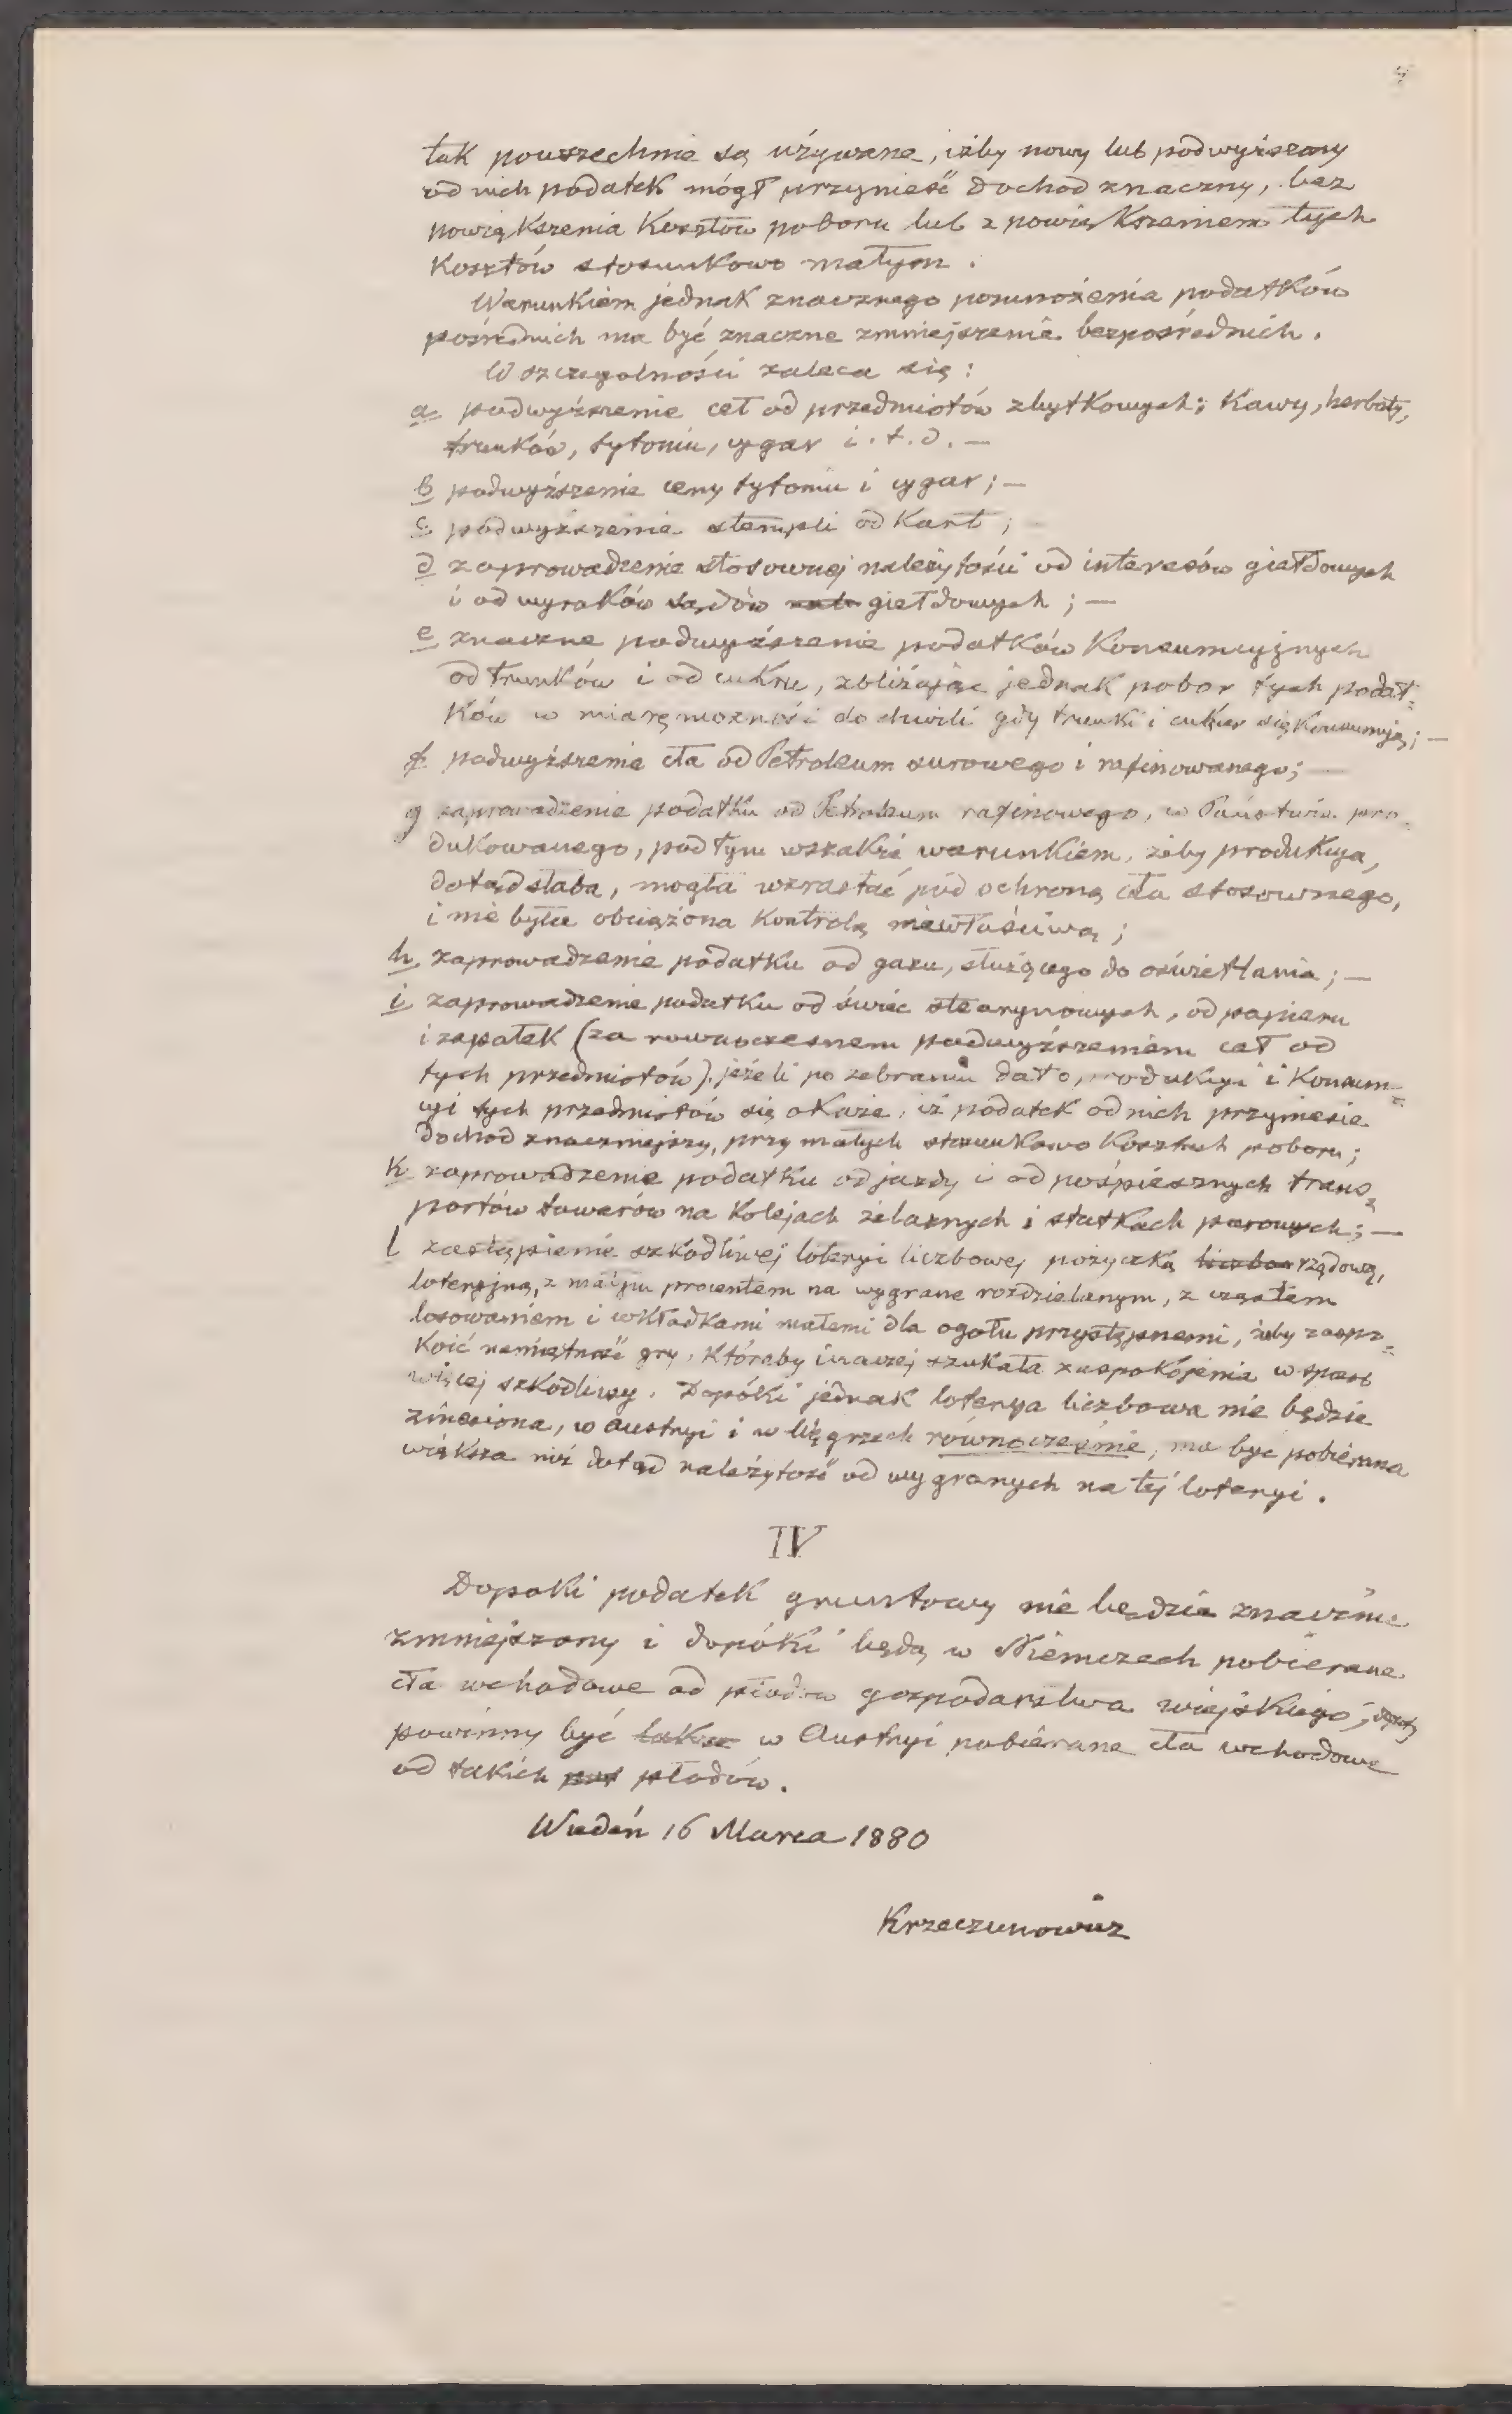 tak powszechnie są używane, iżby nowy lub podwyższony
od nich podatek mógł przynieść dochód znaczny, bez
powiększenia Kosztów poboru lub z powiększeniem tych
Kosztów stosunkowo małym.
Warunkiem jednak znacznego pomnożenia podatków
pośrednich ma być znaczne zmniejszenie bezpośrednich.
W szczegolności zaleca się:
a podwyższenie ceł od przedmiotów zbytkowych; Kawy, herbaty,
trunków, tytoniu, cygar i.t.d.—
b podwyższenie ceny tytoniu i cygar;—
c podwyższenie stempli od Kart;
d zaprowadzenie stosownej należytości od interesów giełdowych
i od wyroków sądów giełdowych;—
e znaczne podwyższenie podatków Konsumcyjnych
od trunków i od cukru, zbliżając jednak pobor tych podat=
Ków w miarę możności do chwili gdy trunki i cukier się Konsumują;—
f podwyższenie cła od Petroleum surowego i rafinowanego;—
g zaprowadzenie podatku od Petroleum rafinowego, w Państwie pro=
dukowanego, pod tym wszakże warunkiem, żeby produkcya,
dotąd słaba, mogła wzrastać pod ochroną cła stosownego,
i nie była obciążona Kontrolą niewłaściwą;
h zaprowadzenie podatku od gazu, służącego do oświetlania;—
i zaprowadzenie podatku od świec stearynowych, od papieru
i zapałek (za rownoczesnem podwyższeniem ceł od
tych przedmiotów), jeżeli po zebraniu dat o produkcyi i Konsum=
cyi tych przedmiotów się okaże, iż podatek od nich przyniesie
dochod znaczniejszy, przy małych stosunkowo Kosztach poboru;
k zaprowadzenie podatku od jazdy i od pośpiesznych trans=
portów towarów na Kolejach żelaznych i statkach parowych;—
l zastąpienie szkodliwej loteryi liczbowej pożyczką rządową,
loteryjną, z małym procentem na wygrane rozdzielanym, z częstem
losowaniem i wkładkami małemi dla ogołu przystępnemi, żeby zaspo=
Koić namiętność gry, Któraby inaczej szukała zaspokojenia w sposob
więcej szkodliwy. Dopóki jednak loterya liczbowa nie będzie
zniesiona, w Austryi i w Węgrzech równocześnie, ma być pobierana
większa niż dotąd należytość od wygranych na tej loteryi.
IV
Dopoki podatek gruntowy nie będzie znacznie
zmniejszony i dopóki będą w Niemczech pobierane
cła wchodowe od płodów gospodarstwa wiejskiego;
powinny być w Austryi pobierane cła wchodowe
od takich płodów.
Wiedeń 16 Marca 1880
Krzeczunowicz